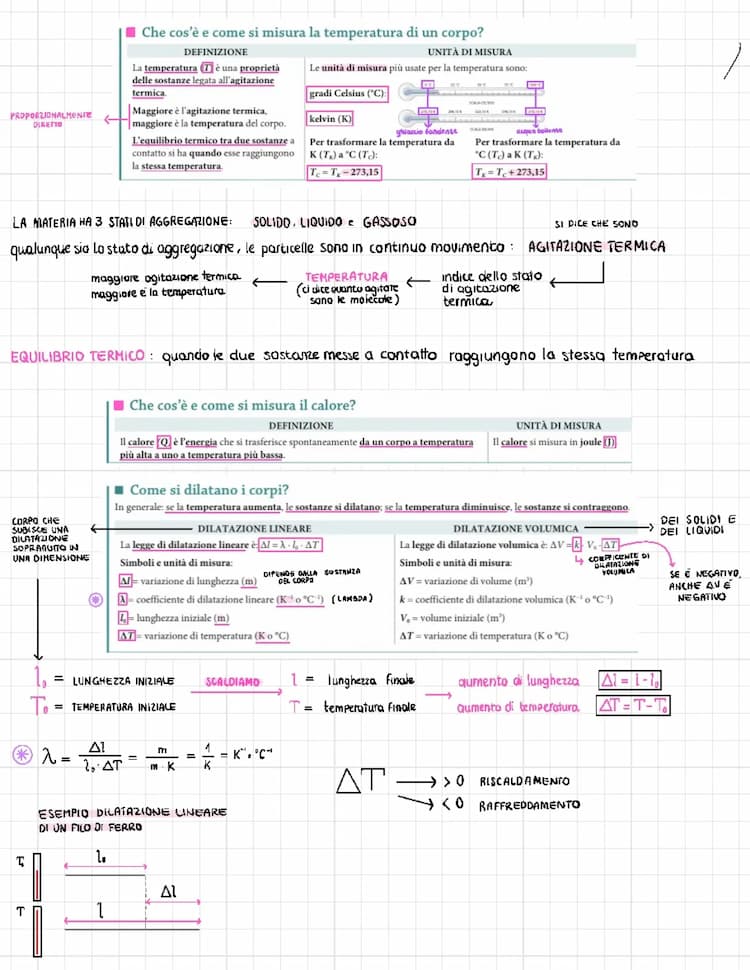 Che cos'è e come si misura la temperatura di un corpo?
DEFINIZIONE
UNITÀ DI MISURA
La temperatura (T) è una proprietà
delle sostanze legata all'agitazione
termica.
Maggiore è l'agitazione termica,
maggiore è la temperatura del corpo.
L'equilibrio termico tra due sostanze a
contatto si ha quando esse raggiungono
la stessa temperatura.
PROPORZIONALMENTE
DIRETTO
Le unità di misura più usate per la temperatura sono:
gradi Celsius (°C):
kelvin (K)
ghiaccio fondente
acqua bollente
Per trasformare la temperatura da
K (TK) a °C (TC):
TC = TK − 273,15
Per trasformare la temperatura da
°C (TC) a K (TK):
TK = TC + 273,15
LA MATERIA HA 3 STATI DI AGGREGAZIONE: SOLIDO, LIQUIDO e GASSOSO
SI DICE CHE SONO
qualunque sia lo stato di aggregazione, le particelle sono in continuo movimento: AGITAZIONE TERMICA
maggiore agitazione termica
maggiore è la temperatura
TEMPERATURA
(ci dice quanto agitate
sono le molecole)
indice dello stato
di agitazione
termica
EQUILIBRIO TERMICO: quando le due sostanze messe a contatto raggiungono la stessa temperatura
Che cos'è e come si misura il calore?
DEFINIZIONE
UNITÀ DI MISURA
Il calore (Q) è l'energia che si trasferisce spontaneamente da un corpo a temperatura
più alta a uno a temperatura più bassa.
Il calore si misura in joule (J)
Come si dilatano i corpi?
In generale: se la temperatura aumenta, le sostanze si dilatano; se la temperatura diminuisce, le sostanze si contraggono.
CORPO CHE
SUBISCE UNA
DILATAZIONE
SOPRATUTTO IN
UNA DIMENSIONE
DILATAZIONE LINEARE
La legge di dilatazione lineare è: Δl = λ · l₀ · ΔT
Simboli e unità di misura:
DIPENDE DALLA SOSTANZA
DEL CORPO
Δl = variazione di lunghezza (m)
λ = coefficiente di dilatazione lineare (K⁻¹ o °C⁻¹) (LAMBDA)
l₀ = lunghezza iniziale (m)
ΔT = variazione di temperatura (K o °C)
DILATAZIONE VOLUMICA
DEI SOLIDI E
DEI LIQUIDI
La legge di dilatazione volumica è: ΔV = k · V₀ · ΔT
COEFFICENTE DI
DILATAZIONE
VOLUMICA
SE È NEGATIVO,
ANCHE ΔV È
NEGATIVO
Simboli e unità di misura:
ΔV = variazione di volume (m³)
k = coefficiente di dilatazione volumica (K⁻¹ o °C⁻¹)
V₀ = volume iniziale (m³)
ΔT = variazione di temperatura (K o °C)
l₀ = LUNGHEZZA INIZIALE SCALDIAMO l = lunghezza finale aumento di lunghezza Δl = l - l₀
T₀ = TEMPERATURA INIZIALE T = temperatura finale aumento di temperatura ΔT = T - T₀
λ = Δl / l₀ · ΔT = m / m · K = 1 / K = K⁻¹ o °C⁻¹
ΔT > 0 RISCALDAMENTO
< 0 RAFFREDDAMENTO
ESEMPIO DILATAZIONE LINEARE
DI UN FILO DI FERRO
T₀ l₀
Δl
T l